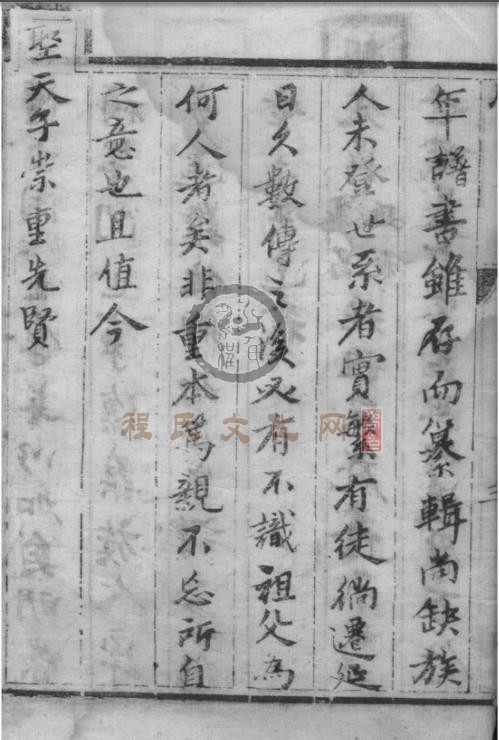 年譜書雖存而纂輯尚缺族
人未登世系者實繁有徒倘遷延
日久數傳之後必有不識祖父為
何人者矣非重本篤親不忘所自
之意也且值今
聖天子崇重先賢
程氏文化网